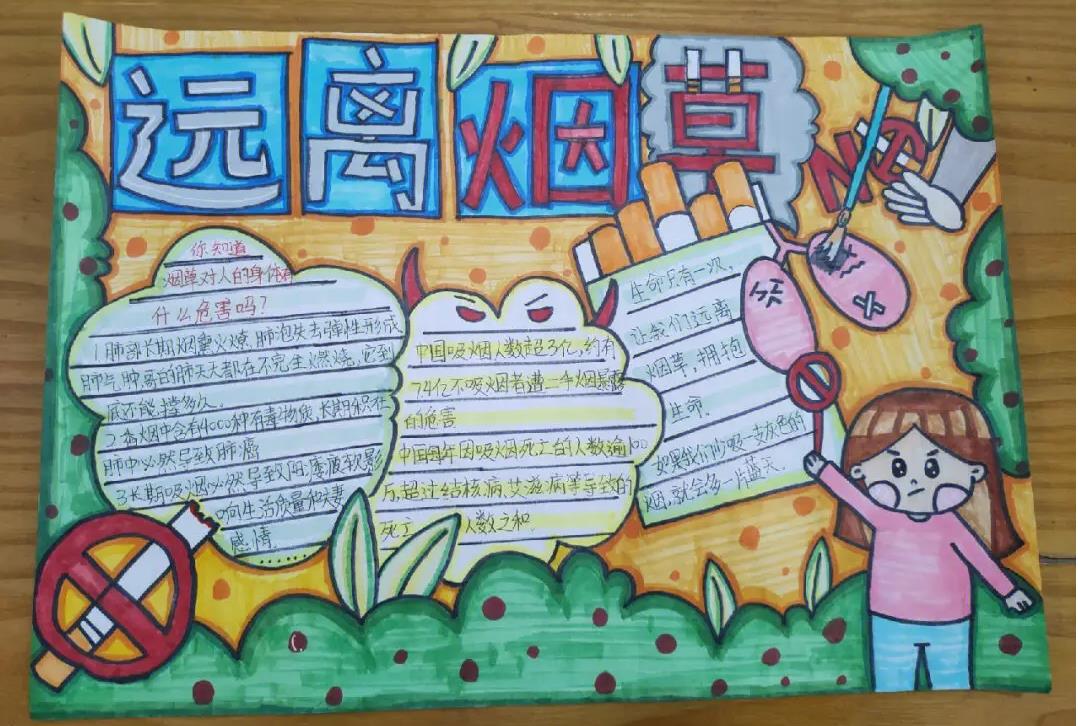 远离烟草
NO
你知道
烟草对人的身体有
什么危害吗?
1.肺部长期烟熏火燎,肺泡失去弹性形成
肺气肿,哥的肺天天都在不完全燃烧,它到
底还能撑多久
2.香烟中含有4000种有毒物质,长期积在
肺中必然导致肺癌
3.长期吸烟必然导致阳痿疲软,影
响生活质量和夫妻
感情.......
中国吸烟人数超3亿,约有
7.4亿不吸烟者遭二手烟暴露
的危害
中国每年因吸烟死亡的人数逾100
万,超过结核病,艾滋病等导致的
死亡人数之和.
生命只有一次,
让我们远离
烟草,拥抱
生命.
如果我们少吸一支灰色的
烟,就会多一片蓝天.